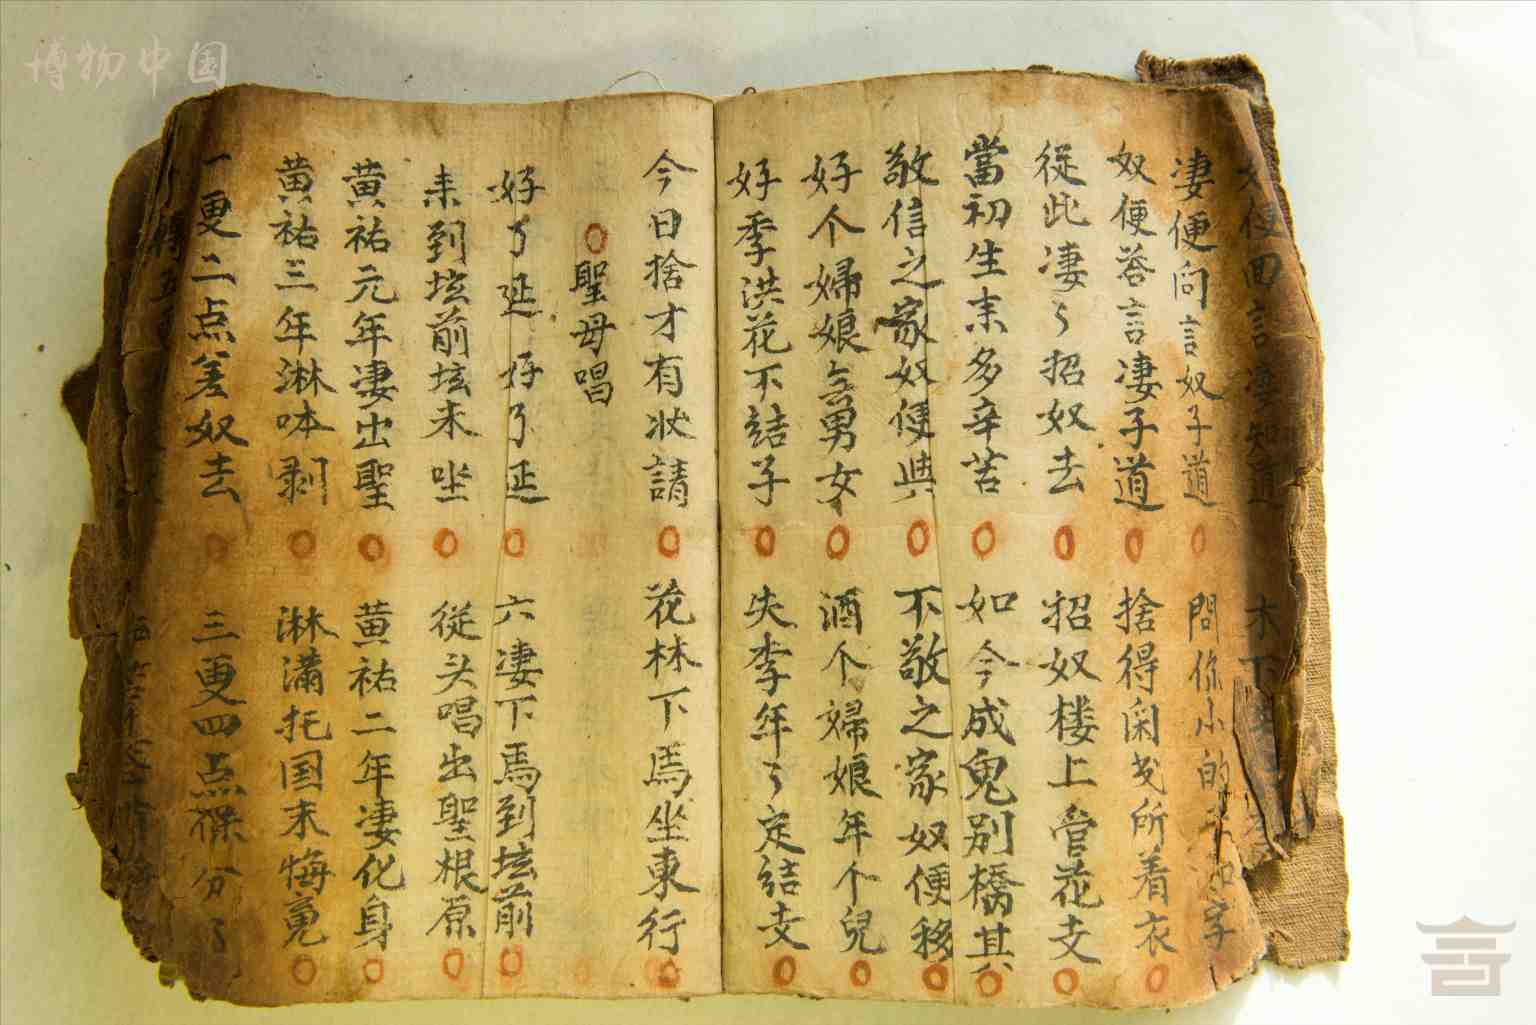 博物中国
便回言凄知道
凄便问言奴子道 問你小的
奴便荅言凄子道 捨得闲我所着衣
從此凄々招奴去 招奴楼上管花支
當初生来多辛苦 如今成鬼别橋其
敬信之家奴便與 不敬之家奴便移
好个婦娘無男女 酒个婦娘年个兒
好季洪花不結子 失李年々定結支
今日捨才有状請 花林下馬坐東行
聖母唱
好了延 好了延 六凄下馬到坛前
来到坛前坛来坐 従头唱出聖根原
黄祐元年凄出聖 黄祐二年凄化身
黄祐三年淋咏剥 淋满托国末悔冤
一更二点差奴去 三更四点 分了